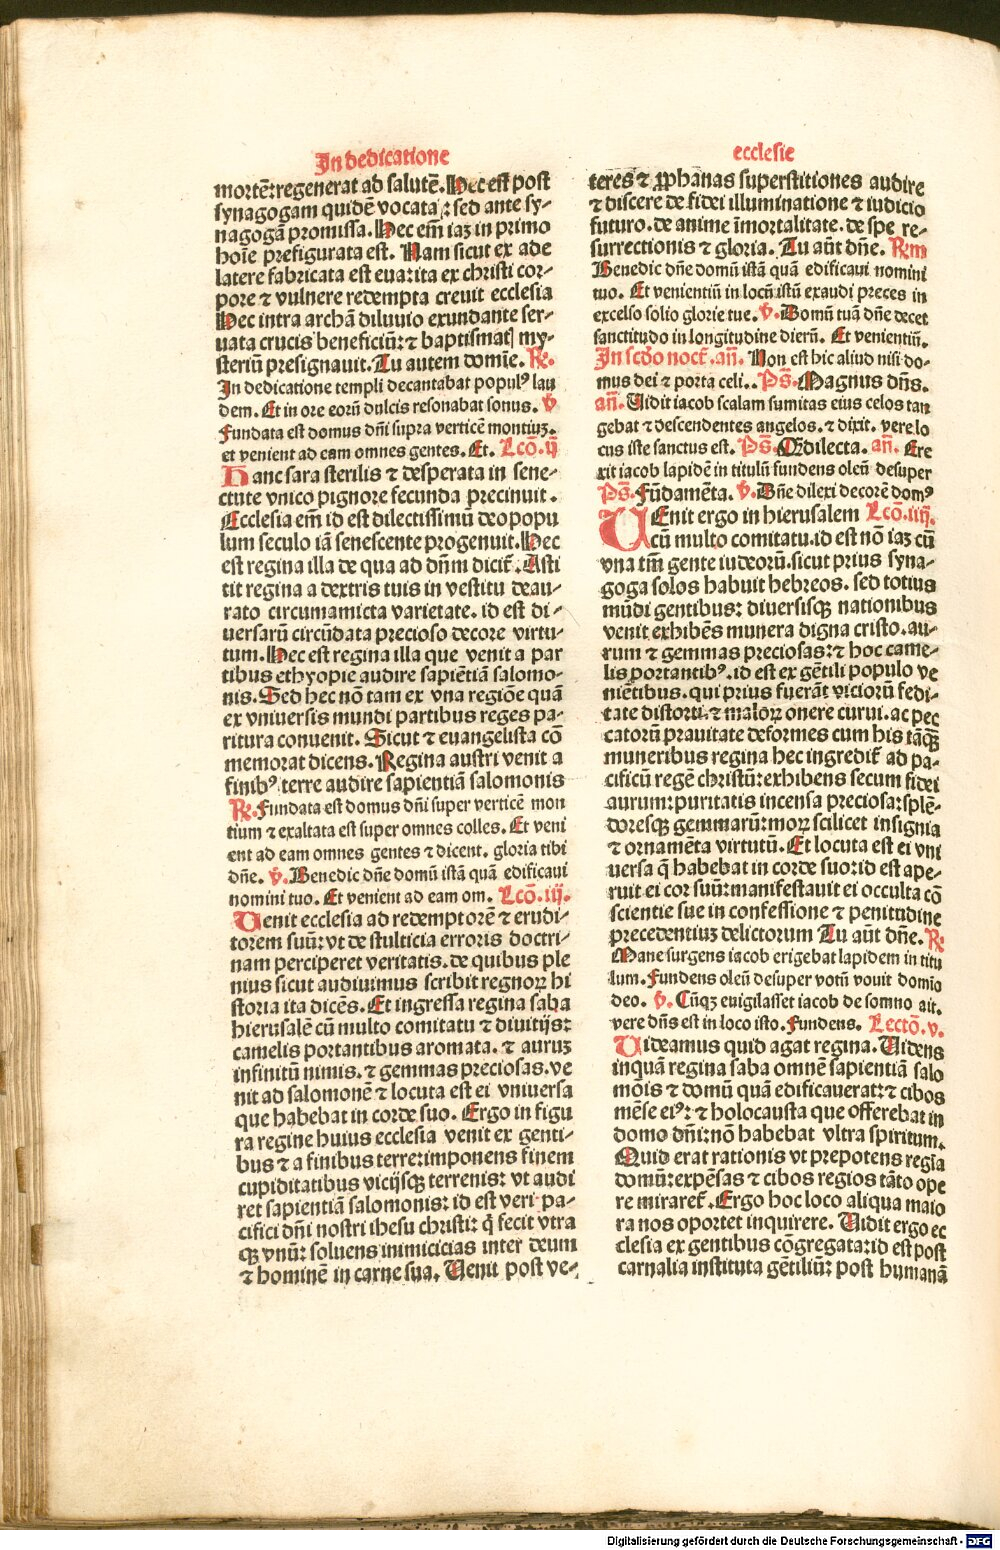 In dedicatione
mortē: regenerat ad salutē. Hec est post
synagogam quidē vocata: sed ante sy-
nagogā promissa. Hec em̄ iaꝫ in primo
hoīe prefigurata est. Nam sicut ex ade
latere fabricata est eua: ita ex christi cor-
pore ⁊ vulnere redempta creuit ecclesia
Hec intra archā diluuio exundante ser-
uata crucis beneficiū: ⁊ baptismatꝭ my-
steriū presignauit. Tu autem domīe. R̃.
In dedicatione templi decantabat populꝰ lau
dem. Et in ore eorū dulcis resonabat sonus. v̄
Fundata est domus dn̄i supra verticē montiuꝫ.
et venient ad eam omnes gentes. Et. Lcō. ij
Hanc sara sterilis ⁊ desperata in sene-
ctute vnico pignore fecunda precinuit.
Ecclesia em̄ id est dilectissimū deo popu
lum seculo iā senescente progenuit. Hec
est regina illa de qua ad dn̄m dicit̄. Asti
tit regina a dextris tuis in vestitu deau-
rato circumamicta varietate. id est di-
uersarū circūdata precioso decore virtu-
tum. Hec est regina illa que venit a par
tibus ethyopie audire sapiētiā salomo-
nis. Sed hec nō tam ex vna regiōe quā
ex vniuersis mundi partibus reges pa-
ritura conuenit. Sicut ⁊ euangelista cō
memorat dicens. Regina austri venit a
finibꝰ terre audire sapientiā salomonis
R̃. Fundata est domus dn̄i super verticē mon
tium ⁊ exaltata est super omnes colles. Et veni
ent ad eam omnes gentes ⁊ dicent. gloria tibi
dn̄e. v̄. Benedic dn̄e domū istā quā edificaui
nomini tuo. Et venient ad eam om. Lcō. iij.
Venit ecclesia ad redemptorē ⁊ erudi-
torem suū: vt de stulticia erroris doctri-
nam perciperet veritatis. de quibus ple
nius sicut audiuimus scribit regnoꝝ hi
storia ita dicēs. Et ingressa regina saba
hierusalē cū multo comitatu ⁊ diuitijs:
camelis portantibus aromata. ⁊ auruꝫ
infinitū nimis. ⁊ gemmas preciosas. ve
nit ad salomonē ⁊ locuta est ei vniuersa
que habebat in corde suo. Ergo in figu
ra regine huius ecclesia venit ex genti-
bus ⁊ a finibus terre: imponens finem
cupiditatibus vicijsqꝫ terrenis: vt audi
ret sapientiā salomonis: id est veri pa-
cifici dn̄i nostri ihesu christi: q̄ fecit vtra
qꝫ vnū: soluens inimicicias inter deum
⁊ hominē in carne sua. Venit post ve-
ecclesie
teres ⁊ ꝓphanas superstitiones audire
⁊ discere de fidei illuminatione ⁊ iudicio
futuro. de anime īmortalitate. de spe re-
surrectionis ⁊ gloria. Tu aūt dn̄e. R̃m
Benedic dn̄e domū istā quā edificaui nomini
tuo. Et venientiū in locū istū exaudi preces in
excelso solio glorie tue. v̄. Domū tuā dn̄e decet
sanctitudo in longitudine dierū. Et venientiū.
In scd̄o noct̄. añ. Non est hic aliud nisi do-
mus dei ⁊ porta celi.. Ps̄. Magnus dn̄s.
añ. Vidit iacob scalam sumitas eius celos tan
gebat ⁊ descendentes angelos. ⁊ dixit. vere lo
cus iste sanctus est. Ps̄. Q̄dilecta. añ. Ere
xit iacob lapidē in titulū fundens oleū desuper
Ps̄. Fūdamēta. v̄. Dn̄e dilexi decorē domꝰ
VEnit ergo in hierusalem Lcō. iiij.
cū multo comitatu. id est nō iaꝫ cū
vna tm̄ gente iudeorū. sicut prius syna-
goga solos habuit hebreos. sed totius
mūdi gentibus: diuersisqꝫ nationibus
venit exhibēs munera digna cristo. au-
rum ⁊ gemmas preciosas: ⁊ hoc came-
lis portantibꝰ. id est ex gētili populo ve
niētibus. qui prius fuerāt viciorū fedi-
tate distorti: ⁊ maloꝝ onere curui. ac pec
catorū prauitate deformes cum his tāqꝫ
muneribus regina hec ingredit̄ ad pa-
cificū regē christū: exhibens secum fidei
aurum: puritatis incensa preciosa: splē-
doresqꝫ gemmarū: moꝝ scilicet insignia
⁊ ornamēta virtutū. Et locuta est ei vni
uersa q̄ habebat in corde suo: id est ape-
ruit ei cor suū: manifestauit ei occulta cō
scientie sue in confessione ⁊ penitudine
precedentiuꝫ delictorum Tu aūt dn̄e. R̃
Mane surgens iacob erigebat lapidem in titu
lum. Fundens oleū desuper votū vouit domīo
deo. v̄. Cūqꝫ euigilasset iacob de somno ait.
vere dn̄s est in loco isto. Fundens. Lectō. v.
Videamus quid agat regina. Videns
inquā regina saba omnē sapientiā salo
mōis ⁊ domū quā edificauerat: ⁊ cibos
mēse eiꝰ: ⁊ holocausta que offerebat in
domo dn̄i: nō habebat vltra spiritum.
Quid erat rationis vt prepotens regia
domū: expēsas ⁊ cibos regios tāto ope
re miraret̄. Ergo hoc loco aliqua maio
ra nos oportet inquirere. Vidit ergo ec
clesia ex gentibus cōgregata: id est post
carnalia instituta gētiliū: post humanā
Digitalisierung gefördert durch die Deutsche Forschungsgemeinschaft - DFG